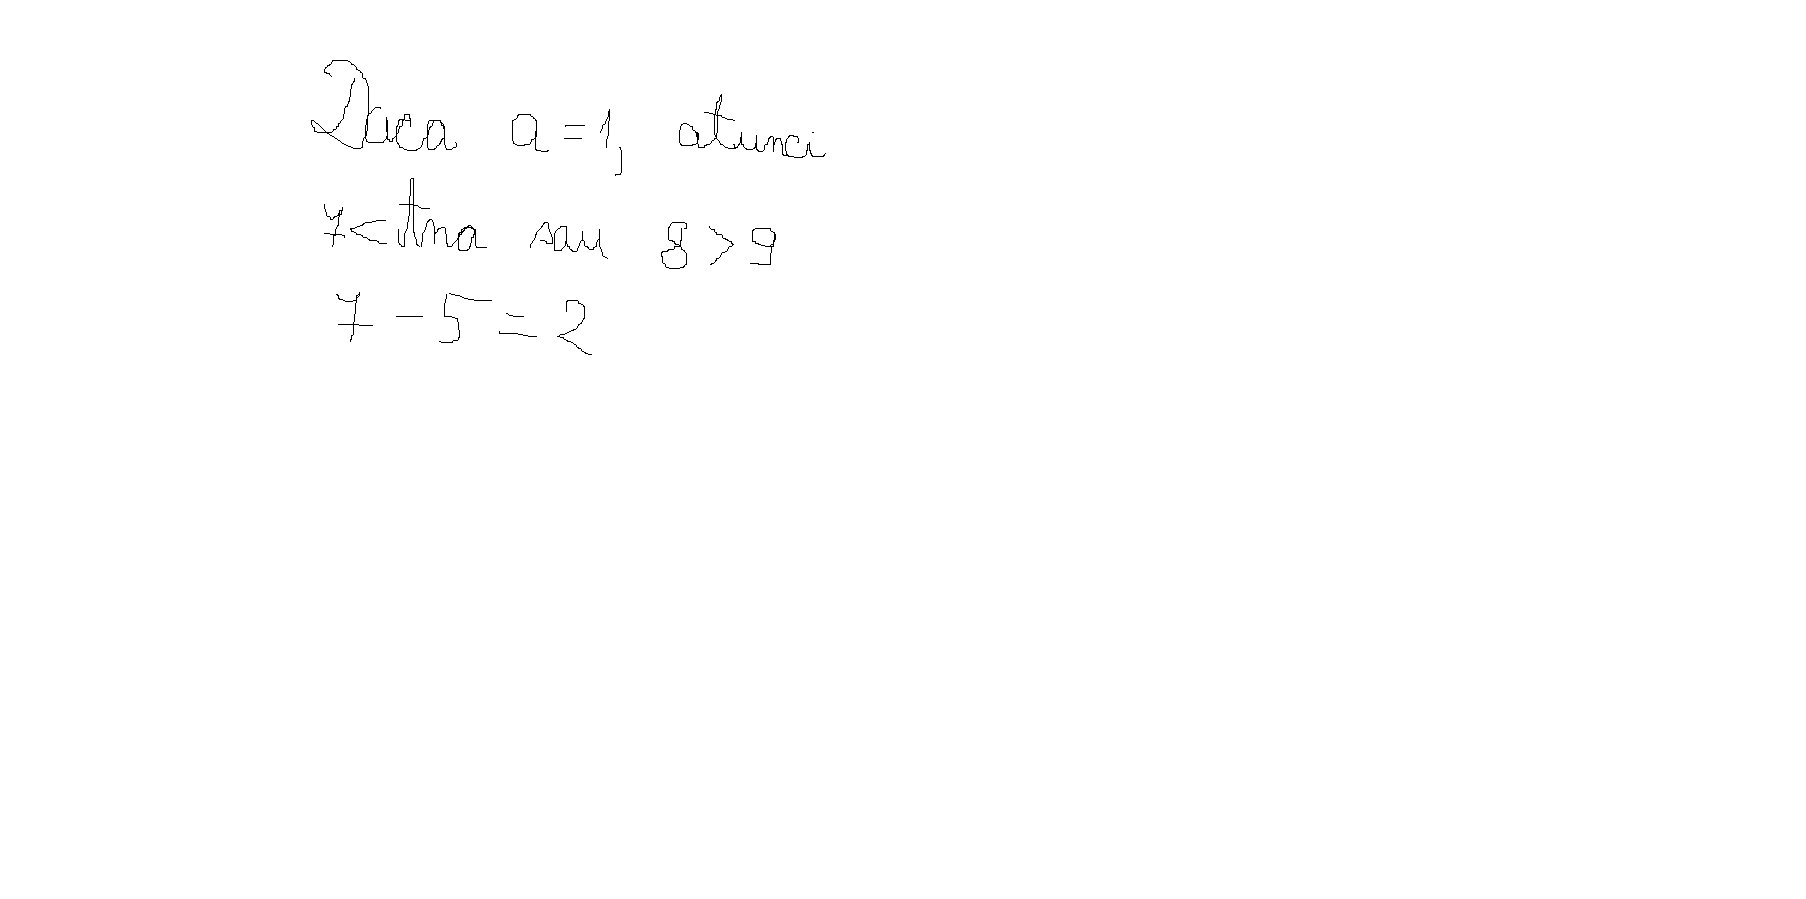 Daca a = 1, atunci
7 < sau 8 > 9
7 - 5 = 2